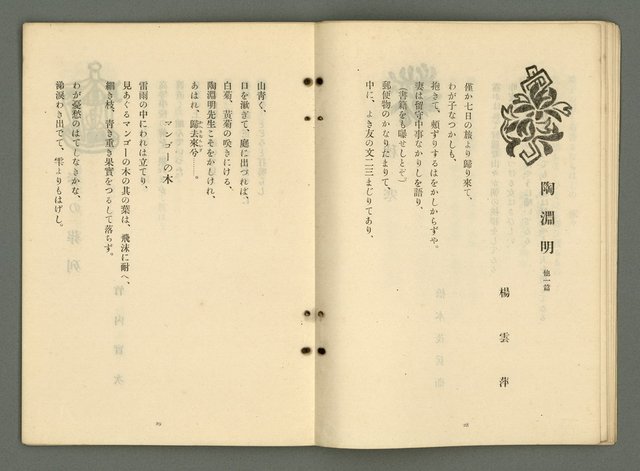 陶淵明 他一篇
楊雲萍
僅か七日の旅より歸り來て、
わが子なつかしも、
抱きて、頰ずりするはをかしからずや。
妻は留守中事なかりしを語り、
(書籍をも曝せしとぞ)
郵便物のかなりたまりて、
中に、よき友の文二三まじりてあり、
山青く、
口を漱ぎて、庭に出づれば、
白菊、黃菊の咲きにける、
陶淵明先生こそをかしけれ、
あはれ、歸去來兮……。
マンゴーの木
雷雨の中にわれは立てり、
見あぐるマンゴーの木の其の葉は、飛沫に耐へ、
細き枝、青き重き果實をつるして落らず。
わが憂愁のはてしなきかな、
涕淚わき出でて、雫よりもはげし。
28
29